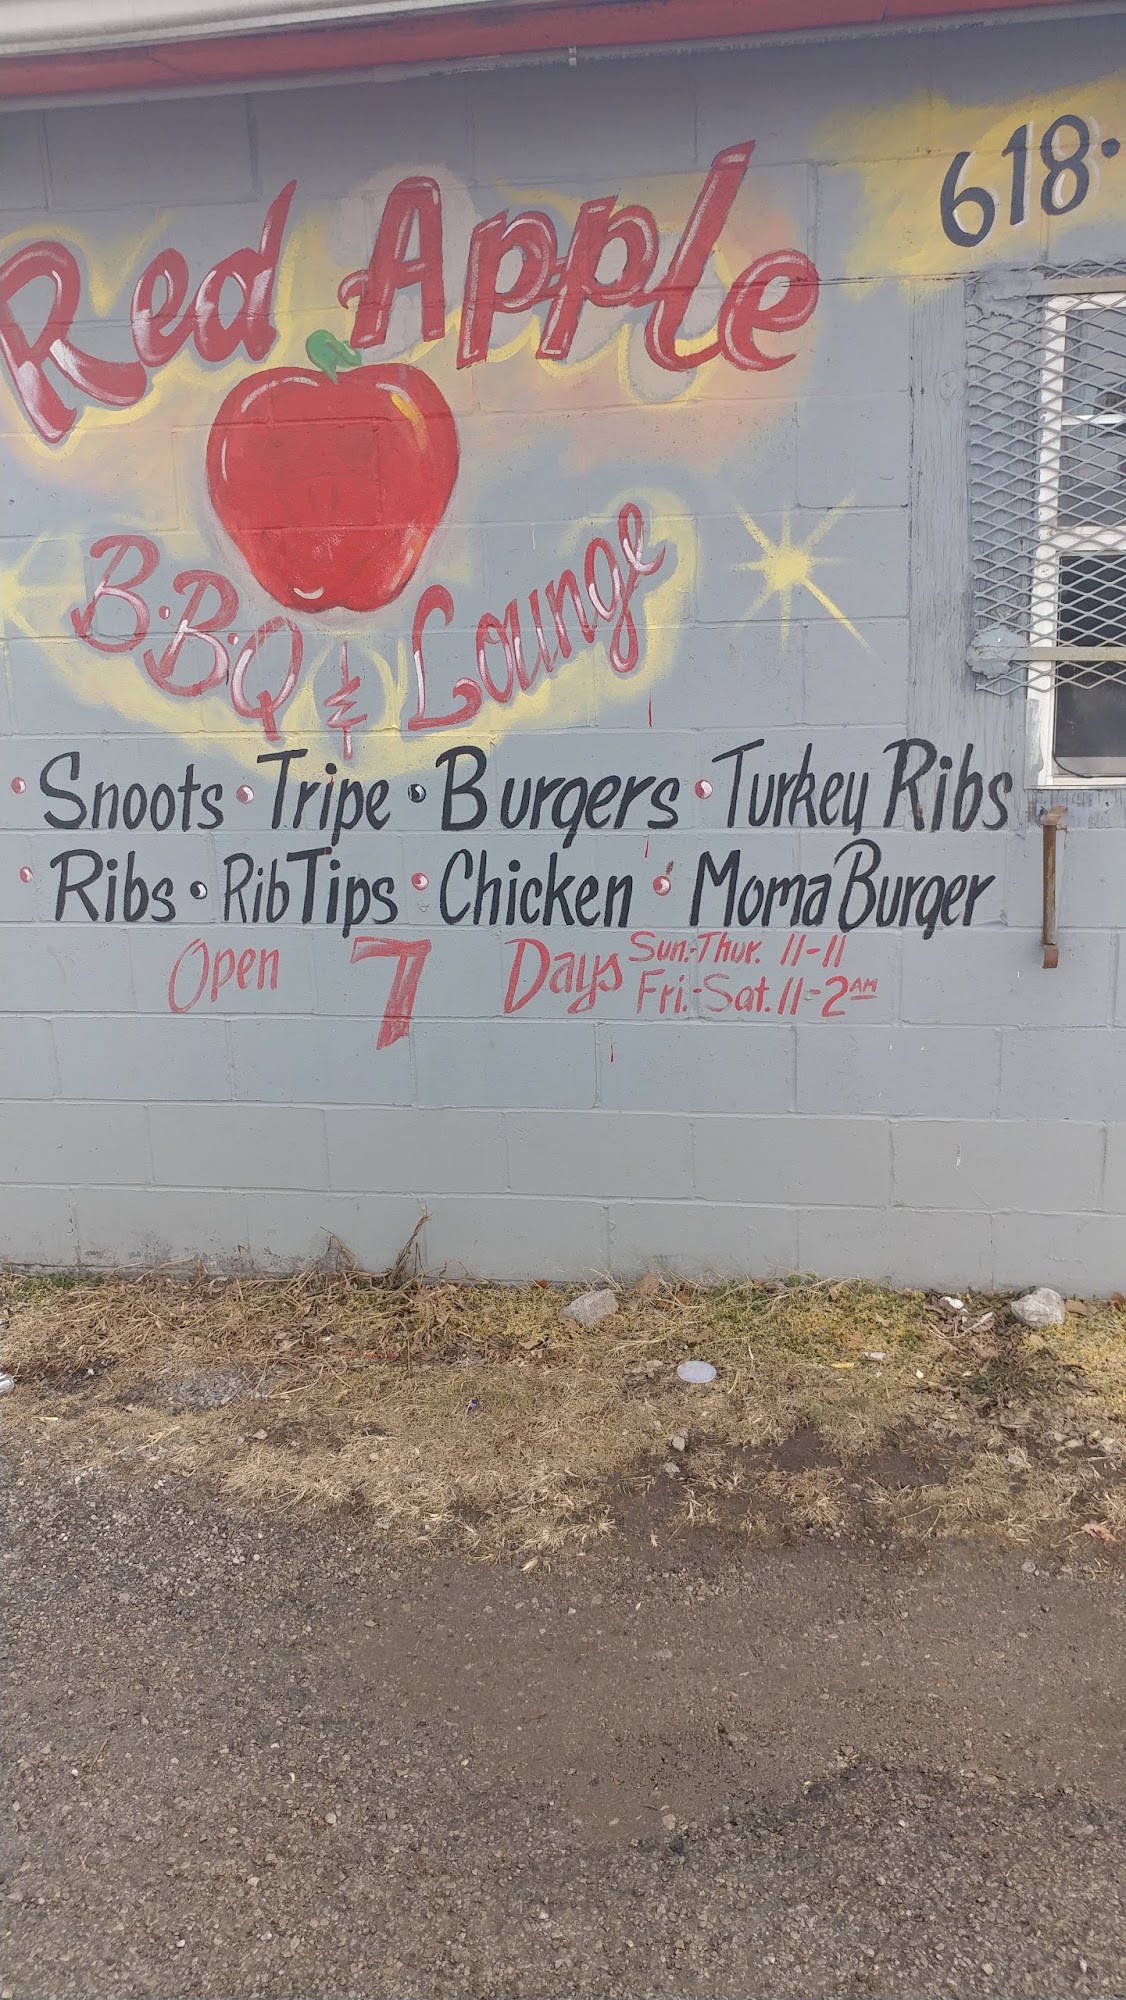 Red Apple
618-
B.B.Q & Lounge
• Snoots • Tripe • Burgers • Turkey Ribs
• Ribs • Rib Tips • Chicken • Moma Burger
Open 7 Days Sun.-Thur. 11-11
Fri.-Sat. 11-2 AM